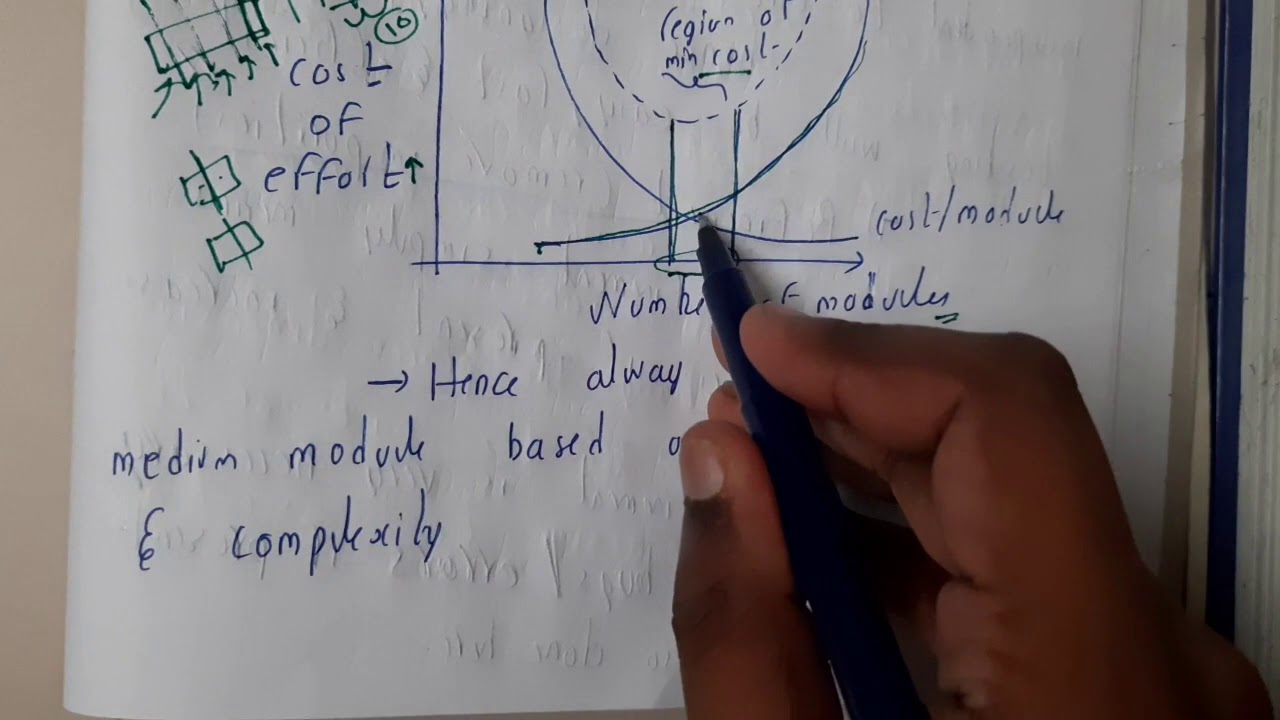 10
region of
min cost
cost
of
effort↑
cost/module
Number of modules
→ Hence alway
medium module based
& complexity